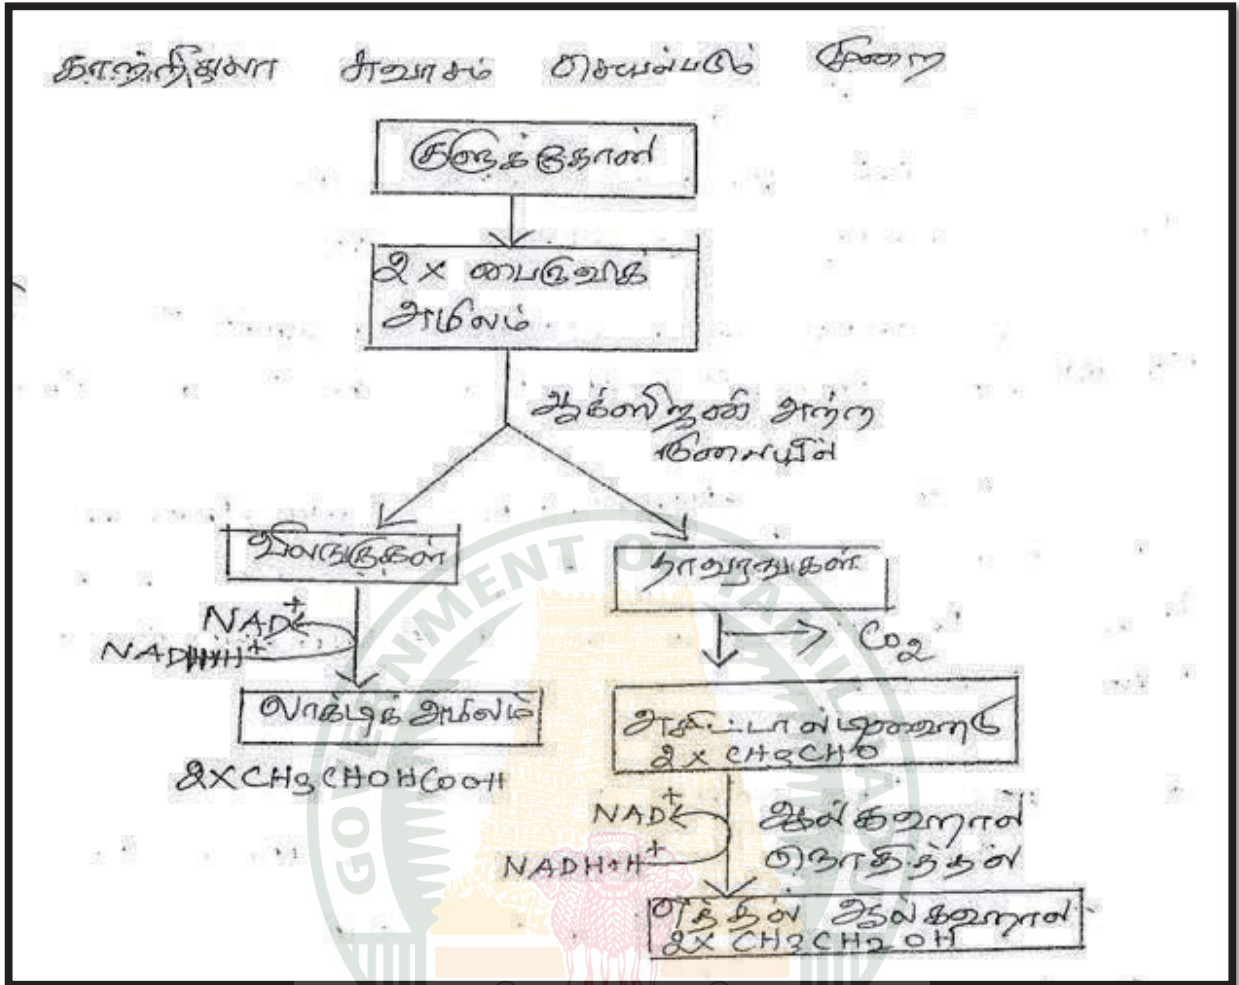 காற்றிதுலா சுவாசம் செயல்படும் முறை
குளுக்கோஸ்
2 x பைருவிக்
அமிலம்
ஆக்ஸிஜன் அற்ற
நிலையில்
விலங்குகள்
தாவரங்கள்
NAD+
NADH+H+
CO2
லாக்டிக் அமிலம்
2XCH3CHOHCOOH
அசிட்டால்டிஹைடு
2 x CH3CHO
NAD+
ஆல்கஹால்
நொதித்தல்
NADH+H+
எத்தில் ஆல்கஹால்
2X CH3CH2OH
GOVERNMENT OF TAMIL NADU